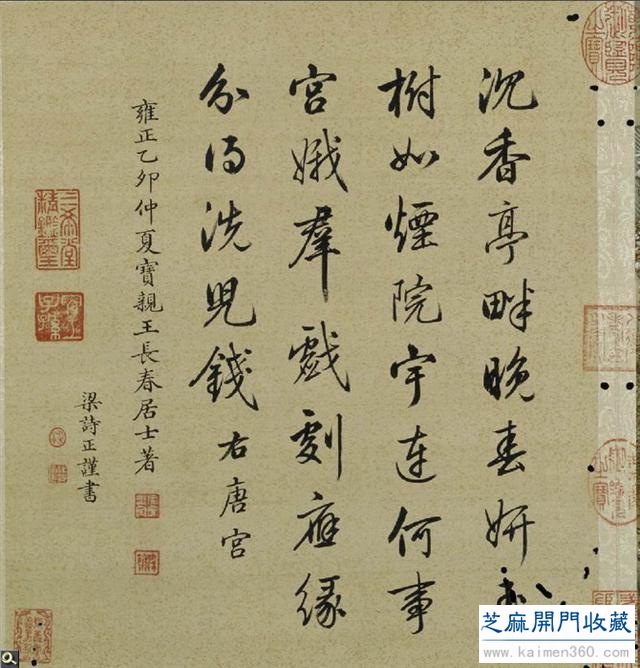 沉香亭畔晚春妍
樹如煙院宇連何事
宮娥羣戲劇應緣
分得洗兒錢右唐宮
雍正乙卯仲夏寶親王長春居士著
梁詩正謹書
三希堂精鑑璽
宜子孫
芝麻開門收藏
www.kaimen360.com